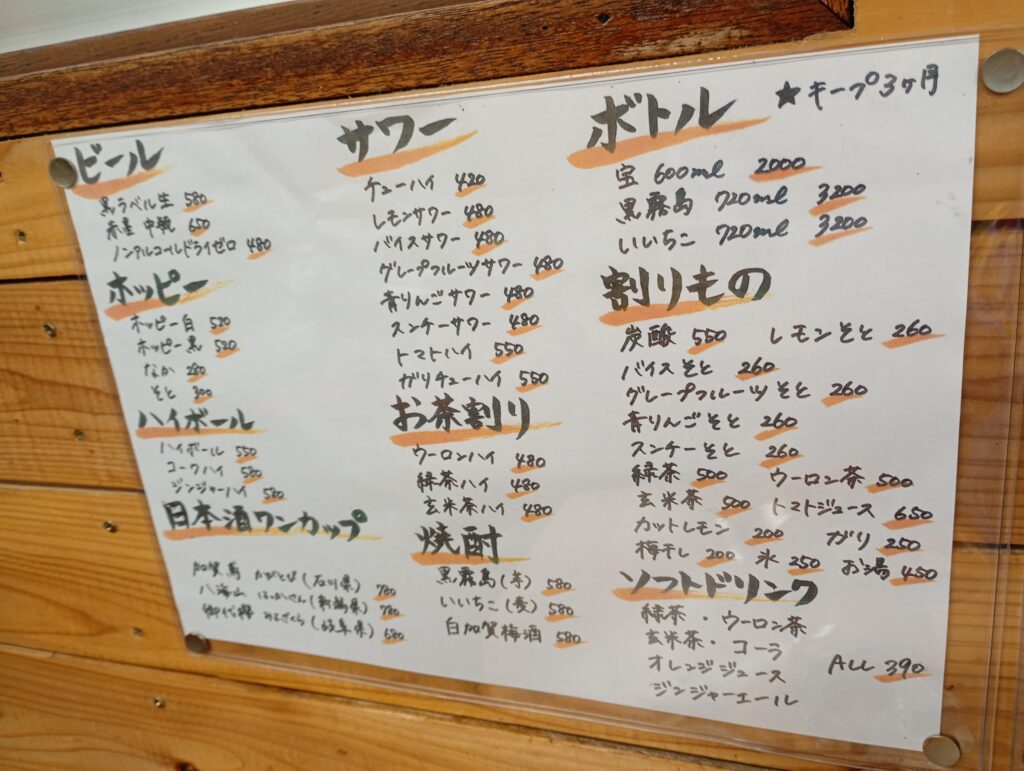 ビール
黒ラベル生 580
赤星 中瓶 650
ノンアルコールドライゼロ 480
ホッピー
ホッピー白 520
ホッピー黒 520
なか 280
そと 300
ハイボール
ハイボール 550
コークハイ 580
ジンジャーハイ 580
日本酒ワンカップ
加賀鳶 かがとび(石川県) 780
八海山 はっかいさん(新潟県) 780
御代桜 みよざくら(岐阜県) 680
サワー
チューハイ 420
レモンサワー 480
バイスサワー 480
グレープフルーツサワー 480
青りんごサワー 480
スンチーサワー 480
トマトハイ 550
ガリチューハイ 550
お茶割り
ウーロンハイ 480
緑茶ハイ 480
玄米茶ハイ 480
焼酎
黒霧島(芋) 580
いいちこ(麦) 580
白加賀梅酒 580
ボトル ★キープ3ヶ月
宝 600ml 2000
黒霧島 720ml 3200
いいちこ 720ml 3200
割りもの
炭酸 550 レモンそと 260
バイスそと 260
グレープフルーツそと 260
青りんごそと 260
スンチーそと 260
緑茶 500 ウーロン茶 500
玄米茶 500 トマトジュース 650
カットレモン 200 ガリ 250
梅干し 200 氷 250 お湯 450
ソフトドリンク
緑茶・ウーロン茶
玄米茶・コーラ
オレンジジュース ALL 390
ジンジャーエール